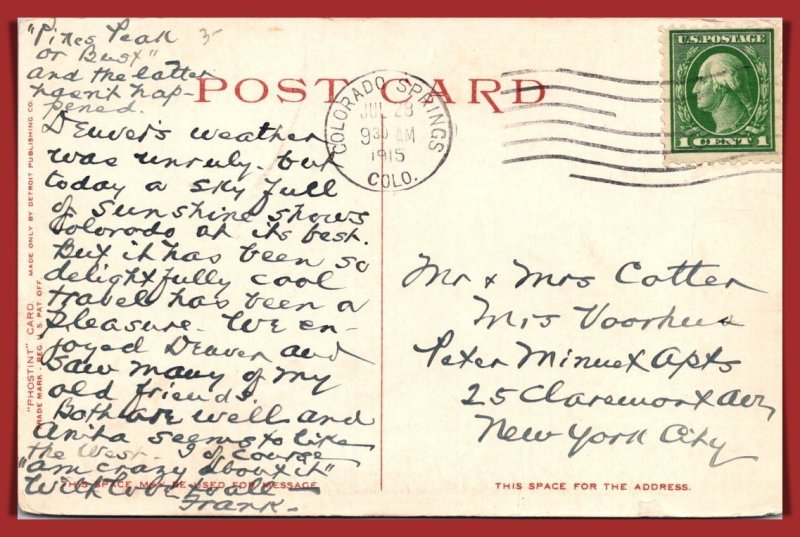 "Pikes Peak
or Bust"
and the latter
hasn't hap-
pened.
POST CARD
Denver's weather
was unruly. but
today a sky full
of sunshine shows
Colorado at its best.
But it has been so
delightfully cool
travel has been a
pleasure. We en-
joyed Denver and
saw many of my
old friends
Both are well and
Anita seems to like
the West. I of course
"am crazy about it"
With love to all—
Frank.
THIS SPACE MAY BE USED FOR MESSAGE
"PHOSTINT" CARD. MADE ONLY BY DETROIT PUBLISHING CO.
TRADE MARK - REG. U. S. PAT. OFF.
COLORADO SPRINGS
JUL 28
9 30 AM
1915
COLO.
U.S. POSTAGE
1 CENT 1
Mr & Mrs Cotter
Mrs Voorhees
Peter Minuet Apts
25 Claremont Ave,
New York City
THIS SPACE FOR THE ADDRESS.